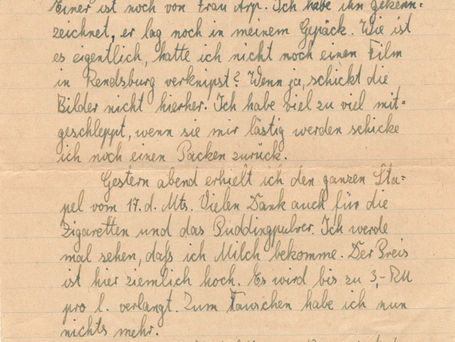 Einer ist noch von Frau Arp. Ich habe ihn gekenn=
zeichnet, er lag noch in meinem Gepäck. Wie ist
es eigentlich, hatte ich nicht noch einen Film
in Rendsburg verknipst? Wenn ja, schickt die
Bilder nicht hierher. Ich habe viel zu viel mit=
geschleppt, wenn sie mir lästig werden schicke
ich noch einen Packen zurück.
Gestern abend erhielt ich den ganzen Sta=
pel vom 17. d. Mts. Vielen Dank auch für die
Zigaretten und das Puddingpulver. Ich werde
mal sehen, daß ich Milch bekomme. Der Preis
ist hier ziemlich hoch. Es wird bis zu 3,-RM
pro l. verlangt. Zum Tauschen habe ich nun
nichts mehr.